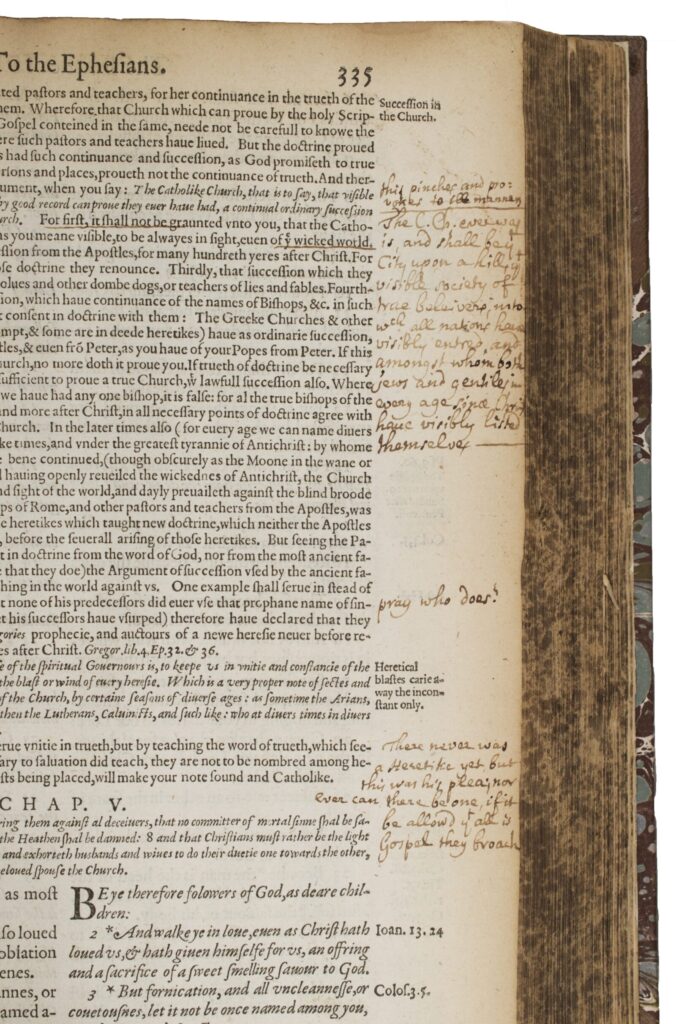 To the Ephesians.
335
ted pastors and teachers, for her continuance in the trueth of the
hem. Wherefore that Church which can proue by the holy Scrip-
Gospel conteined in the same, neede not be carefull to knowe the
ere such pastors and teachers haue liued. But the doctrine proued
s had such continuance and succession, as God promiseth to true
rsons and places, proueth not the continuance of trueth. And ther-
ument, when you say: The Catholike Church, that is to say, that visible
by good record can proue they euer haue had, a continual ordinary succession
urch. For first, it shall not be graunted vnto you, that the Catho-
as you meane visible, to be alwayes in sight, euen of yͤ wicked world.
ssion from the Apostles, for many hundreth yeres after Christ. For
se doctrine they renounce. Thirdly, that succession which they
olues and other dombe dogs, or teachers of lies and fables. Fourth-
ion, which haue continuance of the names of Bishops, &c. in such
t consent in doctrine with them: The Greeke Churches & other
mpt, & some are in deede heretikes) haue as ordinarie succession,
tles, & euen frō Peter, as you haue of your Popes from Peter. If this
hurch, no more doth it proue you. If trueth of doctrine be necessary
sufficient to proue a true Church, wͭ lawfull succession also. Where
we haue had any one bishop, it is false: for al the true bishops of the
and more after Christ, in all necessary points of doctrine agree with
hurch. In the later times also (for euery age we can name diuers
ke times, and vnder the greatest tyrannie of Antichrist: by whome
bene continued, (though obscurely as the Moone in the wane or
d hauing openly reueiled the wickednes of Antichrist, the Church
nd sight of the world, and dayly preuaileth against the blind broode
ps of Rome, and other pastors and teachers from the Apostles, was
e heretikes which taught new doctrine, which neither the Apostles
, before the seuerall arising of those heretikes. But seeing the Pa-
t in doctrine from the word of God, nor from the most ancient fa-
e that they doe) the Argument of succession vsed by the ancient fa-
hing in the world against vs. One example shall serue in stead of
t none of his predecessors did euer vse that prophane name of sin-
et his successors haue vsurped) therefore haue declared that they
gories prophecie, and auctours of a newe heresie neuer before re-
es after Christ. Gregor. lib. 4. Ep. 32. & 36.
e of the spiritual Gouernours is, to keepe vs in vnitie and constancie of the
the blast or wind of euery heresie. Which is a very proper note of sectes and
of the Church, by certaine seasons of diuerse ages: as sometime the Arians,
then the Lutherans, Caluinists, and such like: who at diuers times in diuers
erue vnitie in trueth, but by teaching the word of trueth, which see-
ary to saluation did teach, they are not to be nombred among he-
sts being placed, will make your note sound and Catholike.
CHAP. V.
ring them against al deceiuers, that no committer of mortal sinne shal be sa-
the Heathen shal be damned: 8 and that Christians must rather be the light
and exhorteth husbands and wiues to do their duetie one towards the other,
eloued spouse the Church.
as most
so loued
oblation
enes.
annes, or
amed a-
BE ye therefore folowers of God, as deare chil-
dren:
2 *And walke ye in loue, euen as Christ hath
loued vs, & hath giuen himselfe for vs, an offring
and a sacrifice of a sweet smelling sauour to God.
3 * But fornication, and all vncleannesse, or
couetousnes, let it not be once named among you,
Succession in
the Church.
this pinches and pro-
vokes to the manner
The C. Ch. ever was
is, and shall be yͤ
City upon a hill, yͤ
visible society of
true beleivers, into
wch all nations have
visibly entred, and
amongst whom both
Jews and gentiles in
every age since Christ
have visibly listed
themselves
pray who does?
Heretical
blastes carie a-
way the incon-
stant only.
There never was
a Heretike yet but
this was his plea, nor
ever can there be one, if it
be allowd yͭ all is
Gospel they broach
Ioan. 13. 24
Colos. 3. 5.